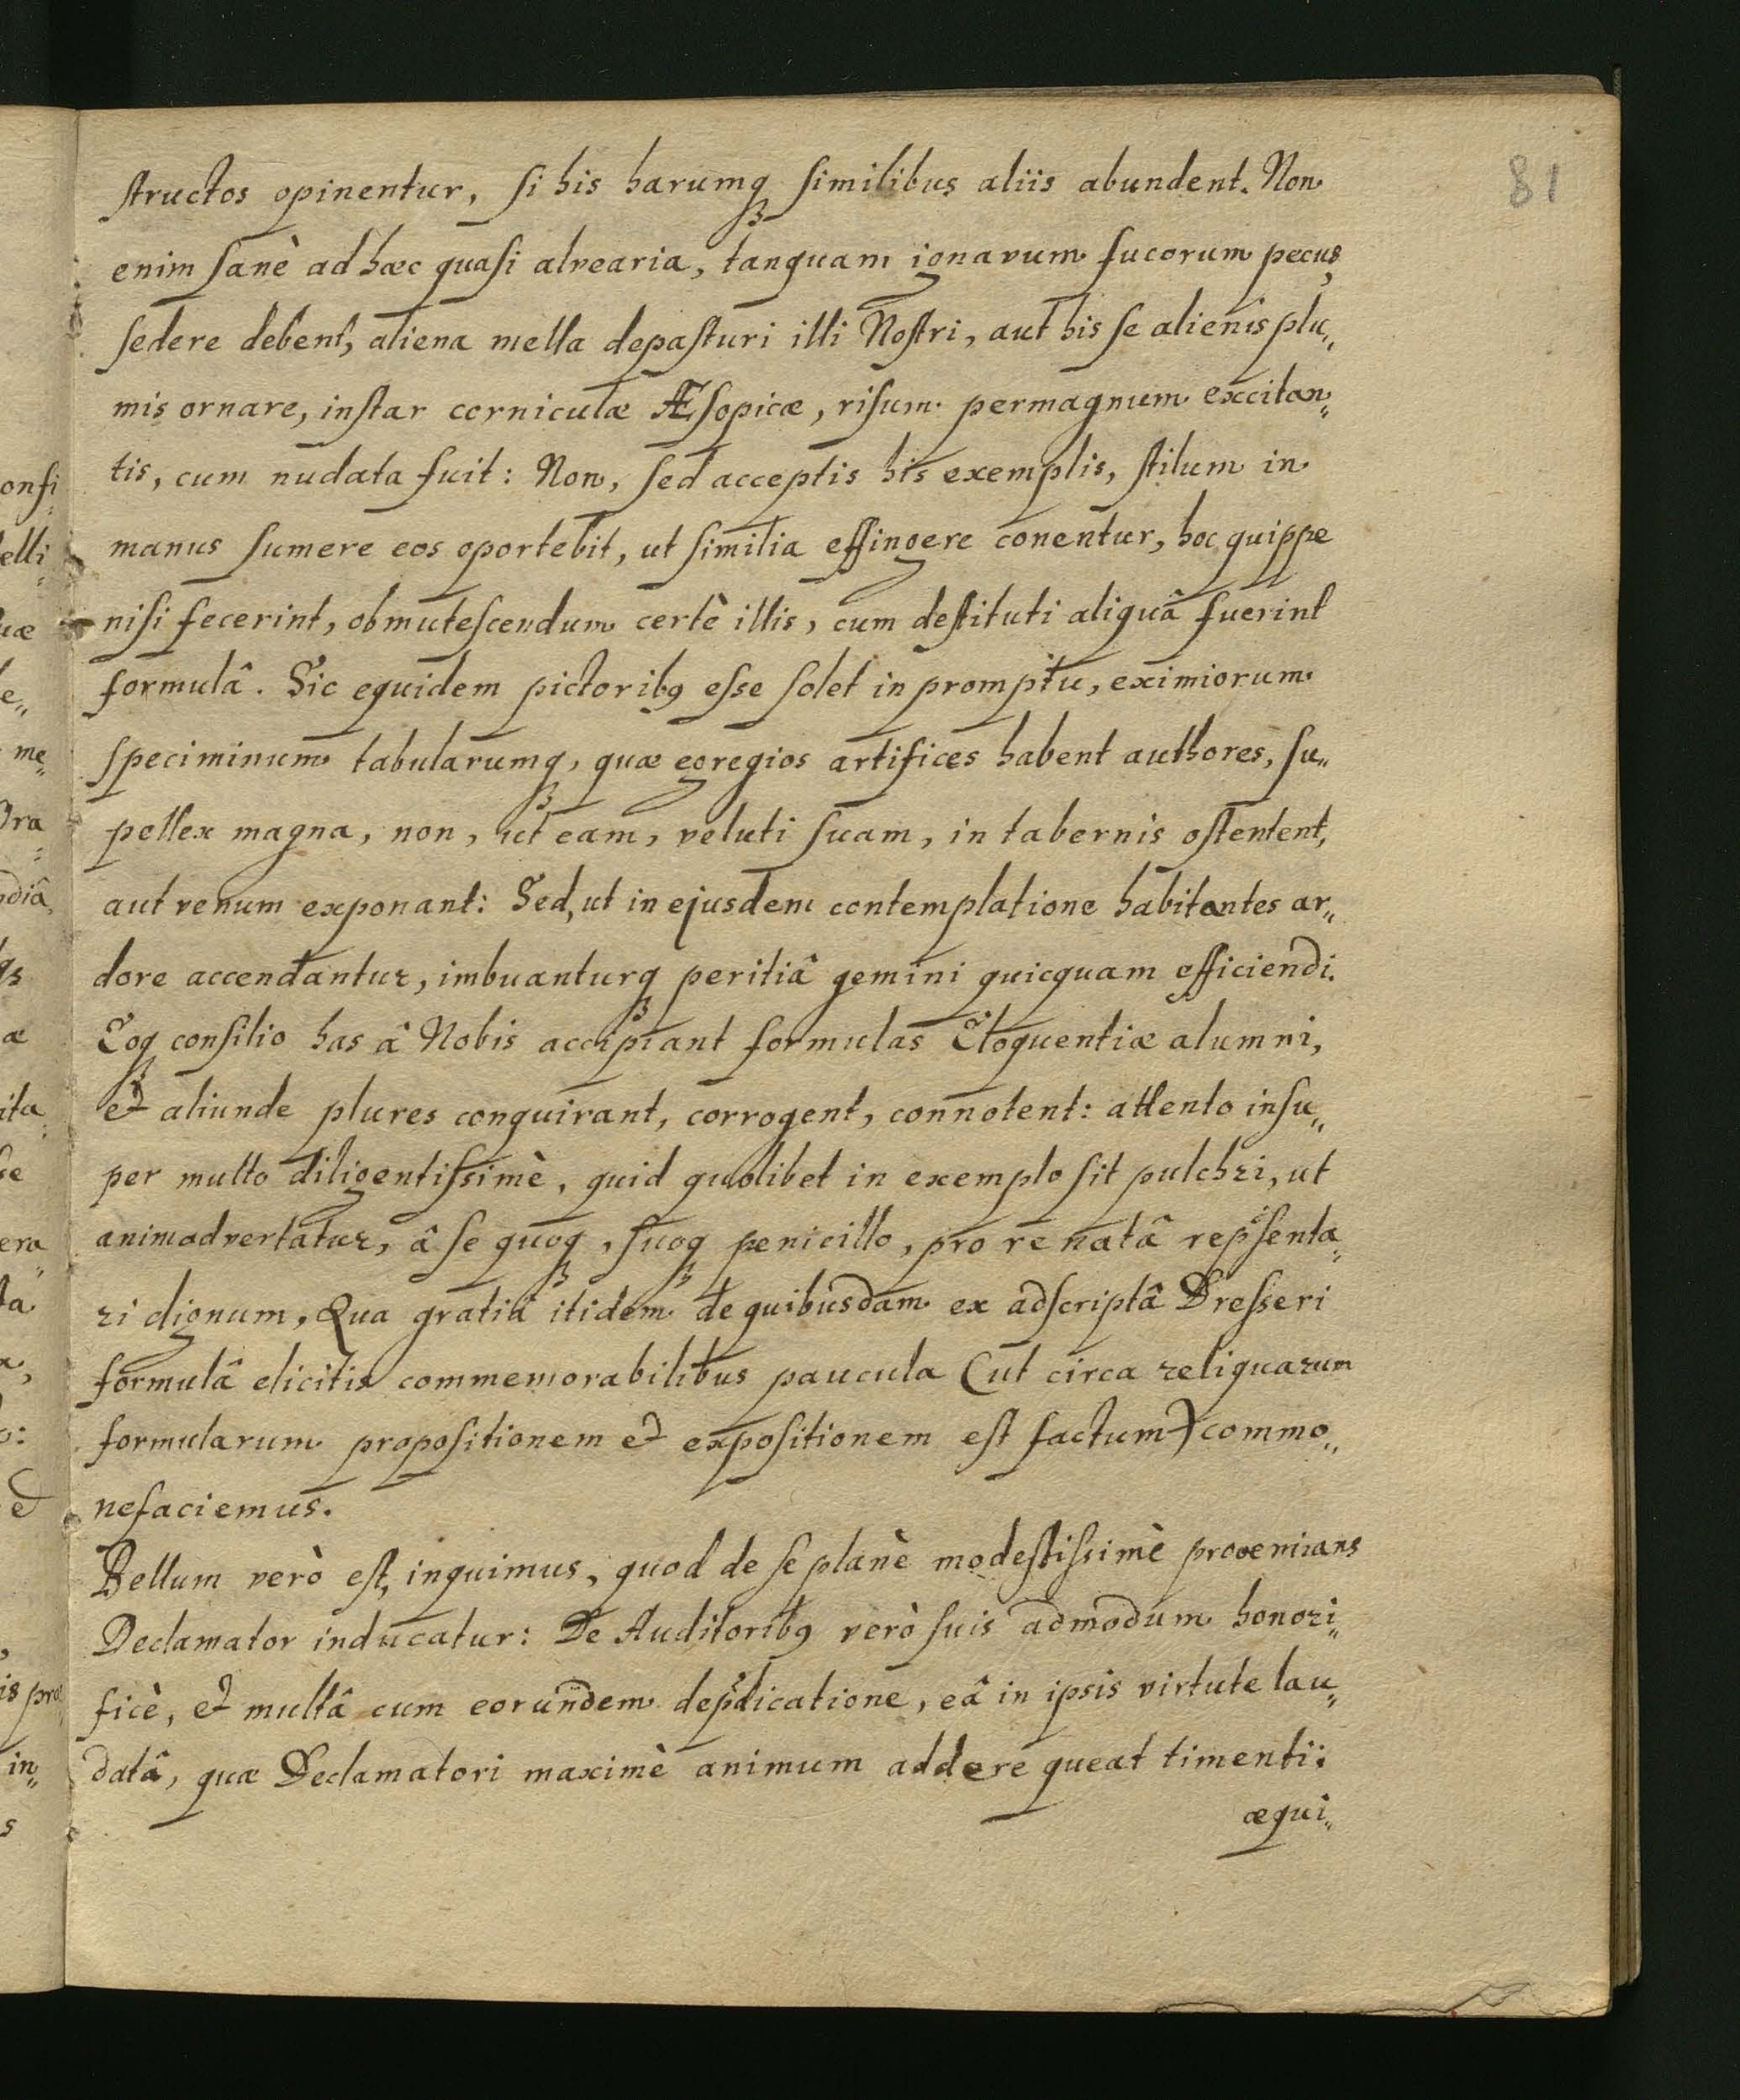 81
structos opinentur, si his harumq́ʒ similibus aliis abundent. Non
enim sanè ad hæc quasi alvearia, tanquam ignavum fucorum pecus,
sedere debent, aliena mella depasturi illi Nostri, aut his se alienis plu„
mis ornare, instar corniculæ Æsopicæ, risum permagnum excitan„
tis, cum nudata fuit: Non, sed acceptis his exemplis, stilum in
manus sumere eos oportebit, ut similia effingere conentur, hoc quippe
nisi fecerint, obmutescendum certè illis, cum destituti aliquâ fuerint
formulâ. Sic equidem pictoribꝯ esse solet in promptu, eximiorum
speciminum tabularumqʒ, quæ egregios artifices habent authores, su„
pellex magna, non, ut eam, veluti suam, in tabernis ostentent,
aut venum exponant: Sed, ut in ejusdem contemplatione habitantes ar„
dore accendantur, imbuanturqʒ peritiâ gemini quicquam efficiendi.
Eoqʒ consilio has â Nobis accipiant formulas Eloquentiæ alumni,
et aliunde plures conquirant, corrogent, connotent: attento insu„
per multo diligentissimè, quid quolibet in exemplo sit pulchri, ut
animadvertatur, â se quoqʒ, suoqʒ penicillo, pro re natâ rep̃senta„
ri dignum, Qua gratiâ itidem de quibusdam ex adscriptâ Dresseri
formulâ elicitis commemorabilibus paucula (ut circa reliquarum
formularum propositionem et expositionem est factum) commo„
nefaciemus.
Bellum verò est, inquimus, quod de se planè modestissimè prooemians
Declamator inducatur: De Auditoribꝯ verò suis admodum honori„
ficè, et multâ cum eorundem dep̃dicatione, eâ in ipsis virtute lau„
datâ, quæ Declamatori maximè animum addere queat timenti:
æqui„